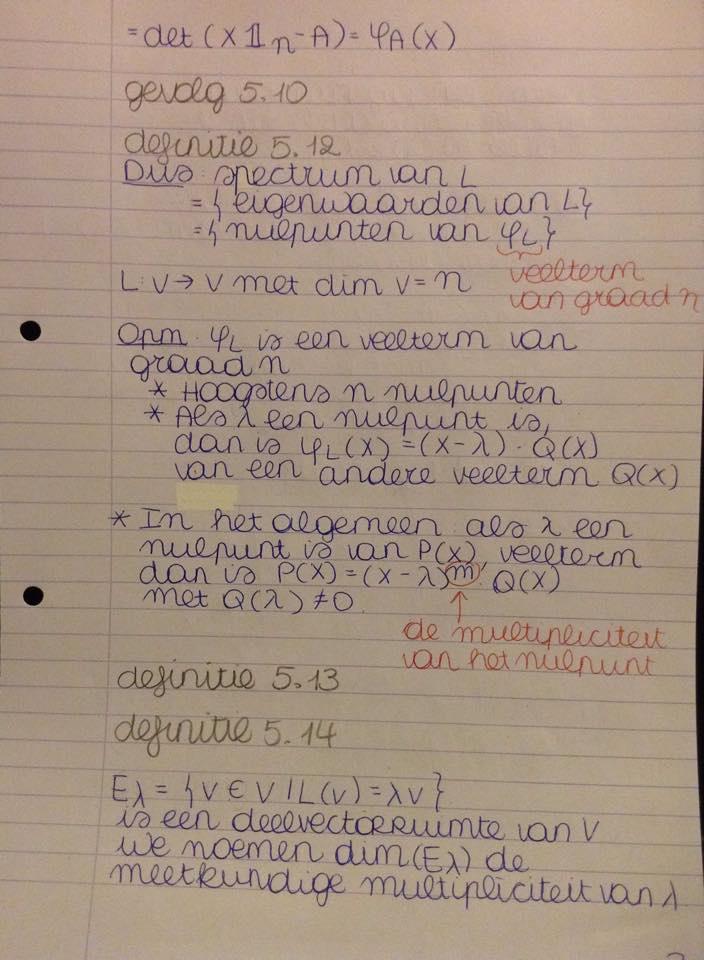 = det (X 𝟙n - A) = φA(X)
gevolg 5.10
definitie 5.12
Dus: spectrum van L
= { eigenwaarden van L}
= { nulpunten van φL}
veelterm
L: V → V met dim V = n
van graad n
Opm. φL is een veelterm van
graad n
* Hoogstens n nulpunten
* Als λ een nulpunt is,
dan is φL(X) = (X-λ) · Q(X)
van een andere veelterm Q(X)
* In het algemeen: als λ een
nulpunt is van P(X), veelterm
dan is P(X) = (X-λ)^m · Q(X)
met Q(λ) ≠ 0.
de multipliciteit
van het nulpunt
definitie 5.13
definitie 5.14
Eλ = { v ∈ V | L(v) = λv }
is een deelvectorruimte van V
we noemen dim(Eλ) de
meetkundige multipliciteit van λ